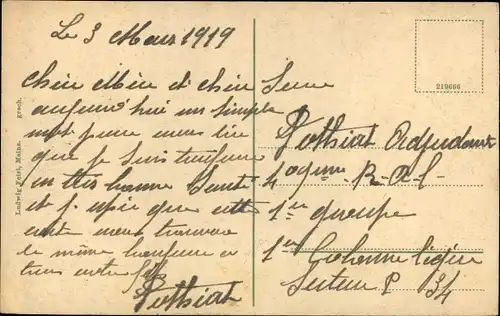 Le 3 Mars 1919
Cher Mère et Cher Père
aujourd'hui un simple
mot pour vous dire
que je suis toujours
en très bonne Santé
et j'espère que cette
carte vous trouvera
de même
tous votre fils
Pothiat
Pothiat Adjudant
R.A.L.
1er groupe
1er Colonne légère
Secteur P 34
Ludwig Feist, Mainz. gesch.
219666